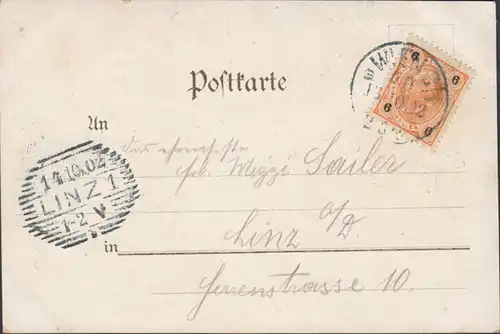 Postkarte
6 6
6 6
WIEN
An
frl. Mizzi Sailer
14.10.02
LINZ 1
1-2 V
in Linz a/D.
Herrenstrasse 10.